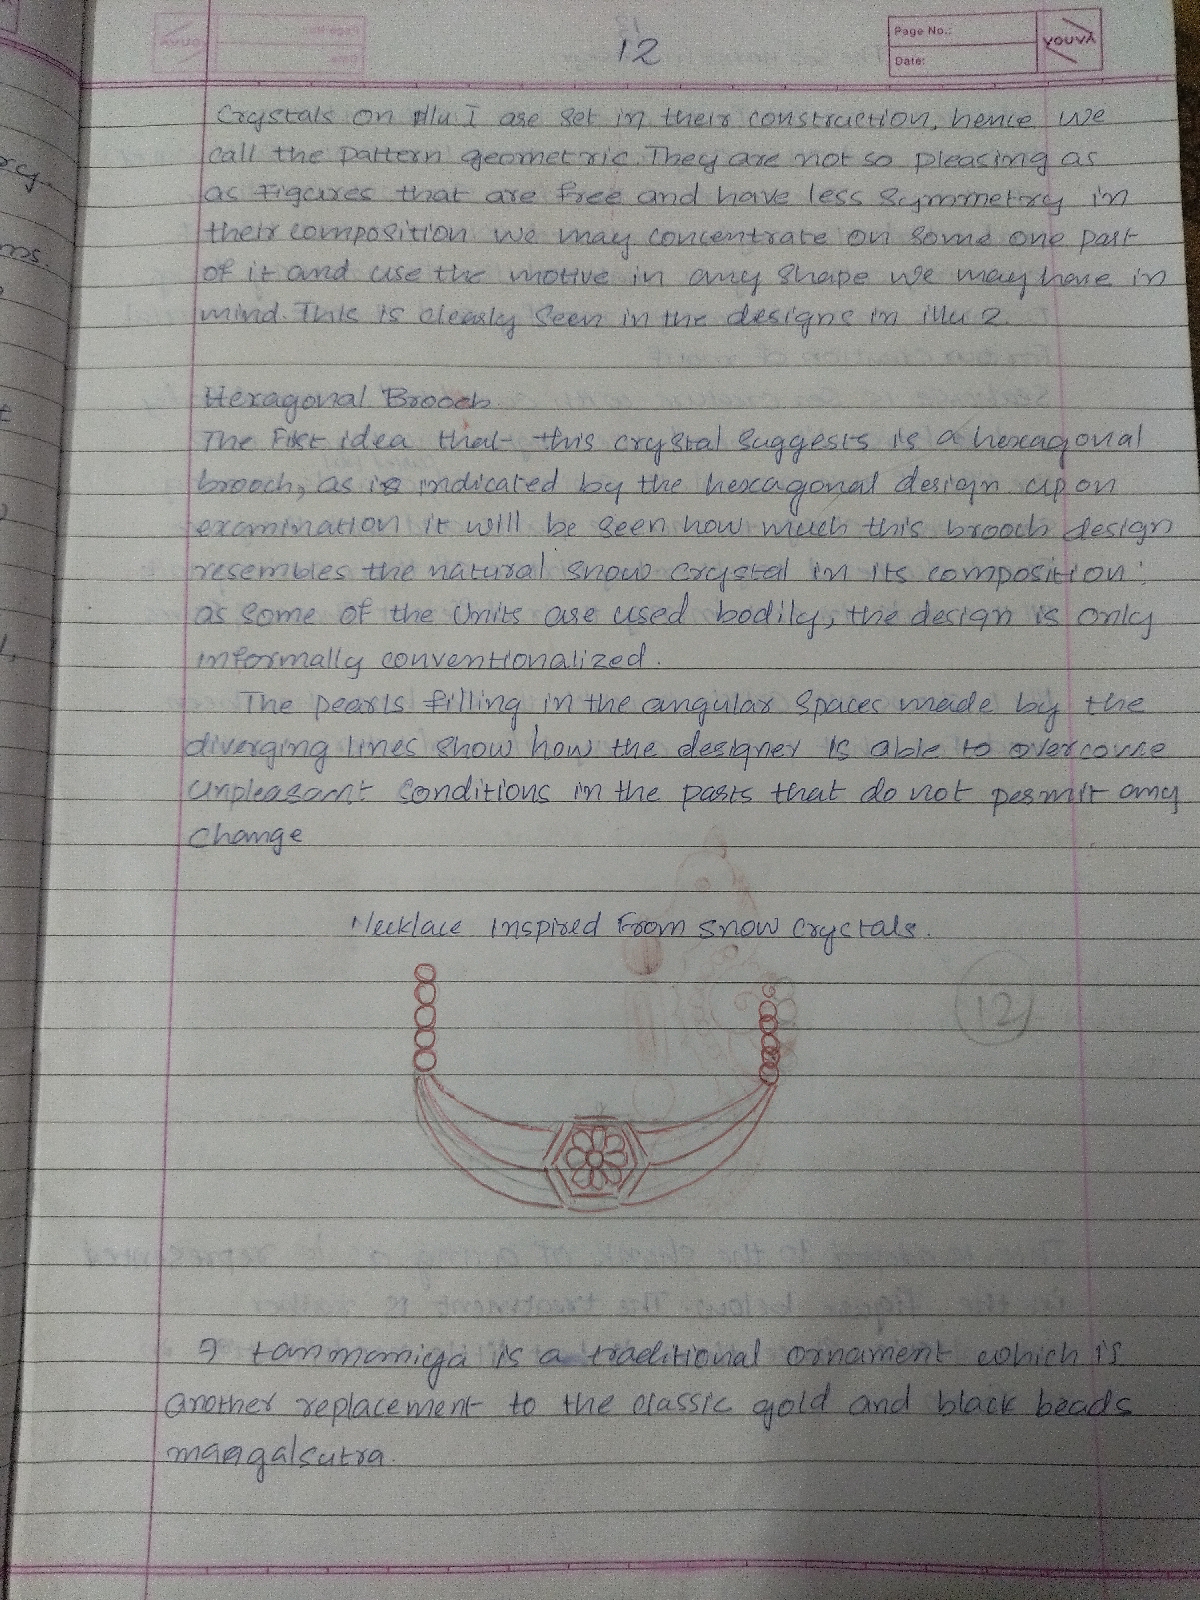 12
Page No.:
Date:
YOUVA
Crystals on illu I are set in their construction, hence we
call the pattern geometric. They are not so pleasing as
as figures that are free and have less symmetry in
their composition we may concentrate on some one part
of it and use the motive in any shape we may have in
mind. This is clearly seen in the designs in illu 2.
Hexagonal Brooch.
The First idea that this crystal suggests is a hexagonal
brooch, as is indicated by the hexagonal design upon
examination it will be seen how much this brooch design
resembles the natural snow crystal in its composition:
as some of the Units are used bodily, the design is only
informally conventionalized.
The pearls filling in the angular spaces made by the
diverging lines show how the designer is able to overcome
unpleasant conditions in the parts that do not permit any
change
Necklace inspired From snow crystals.
12
tanmaniya is a traditional ornament which is
another replacement to the classic gold and black beads
mangalsutra.